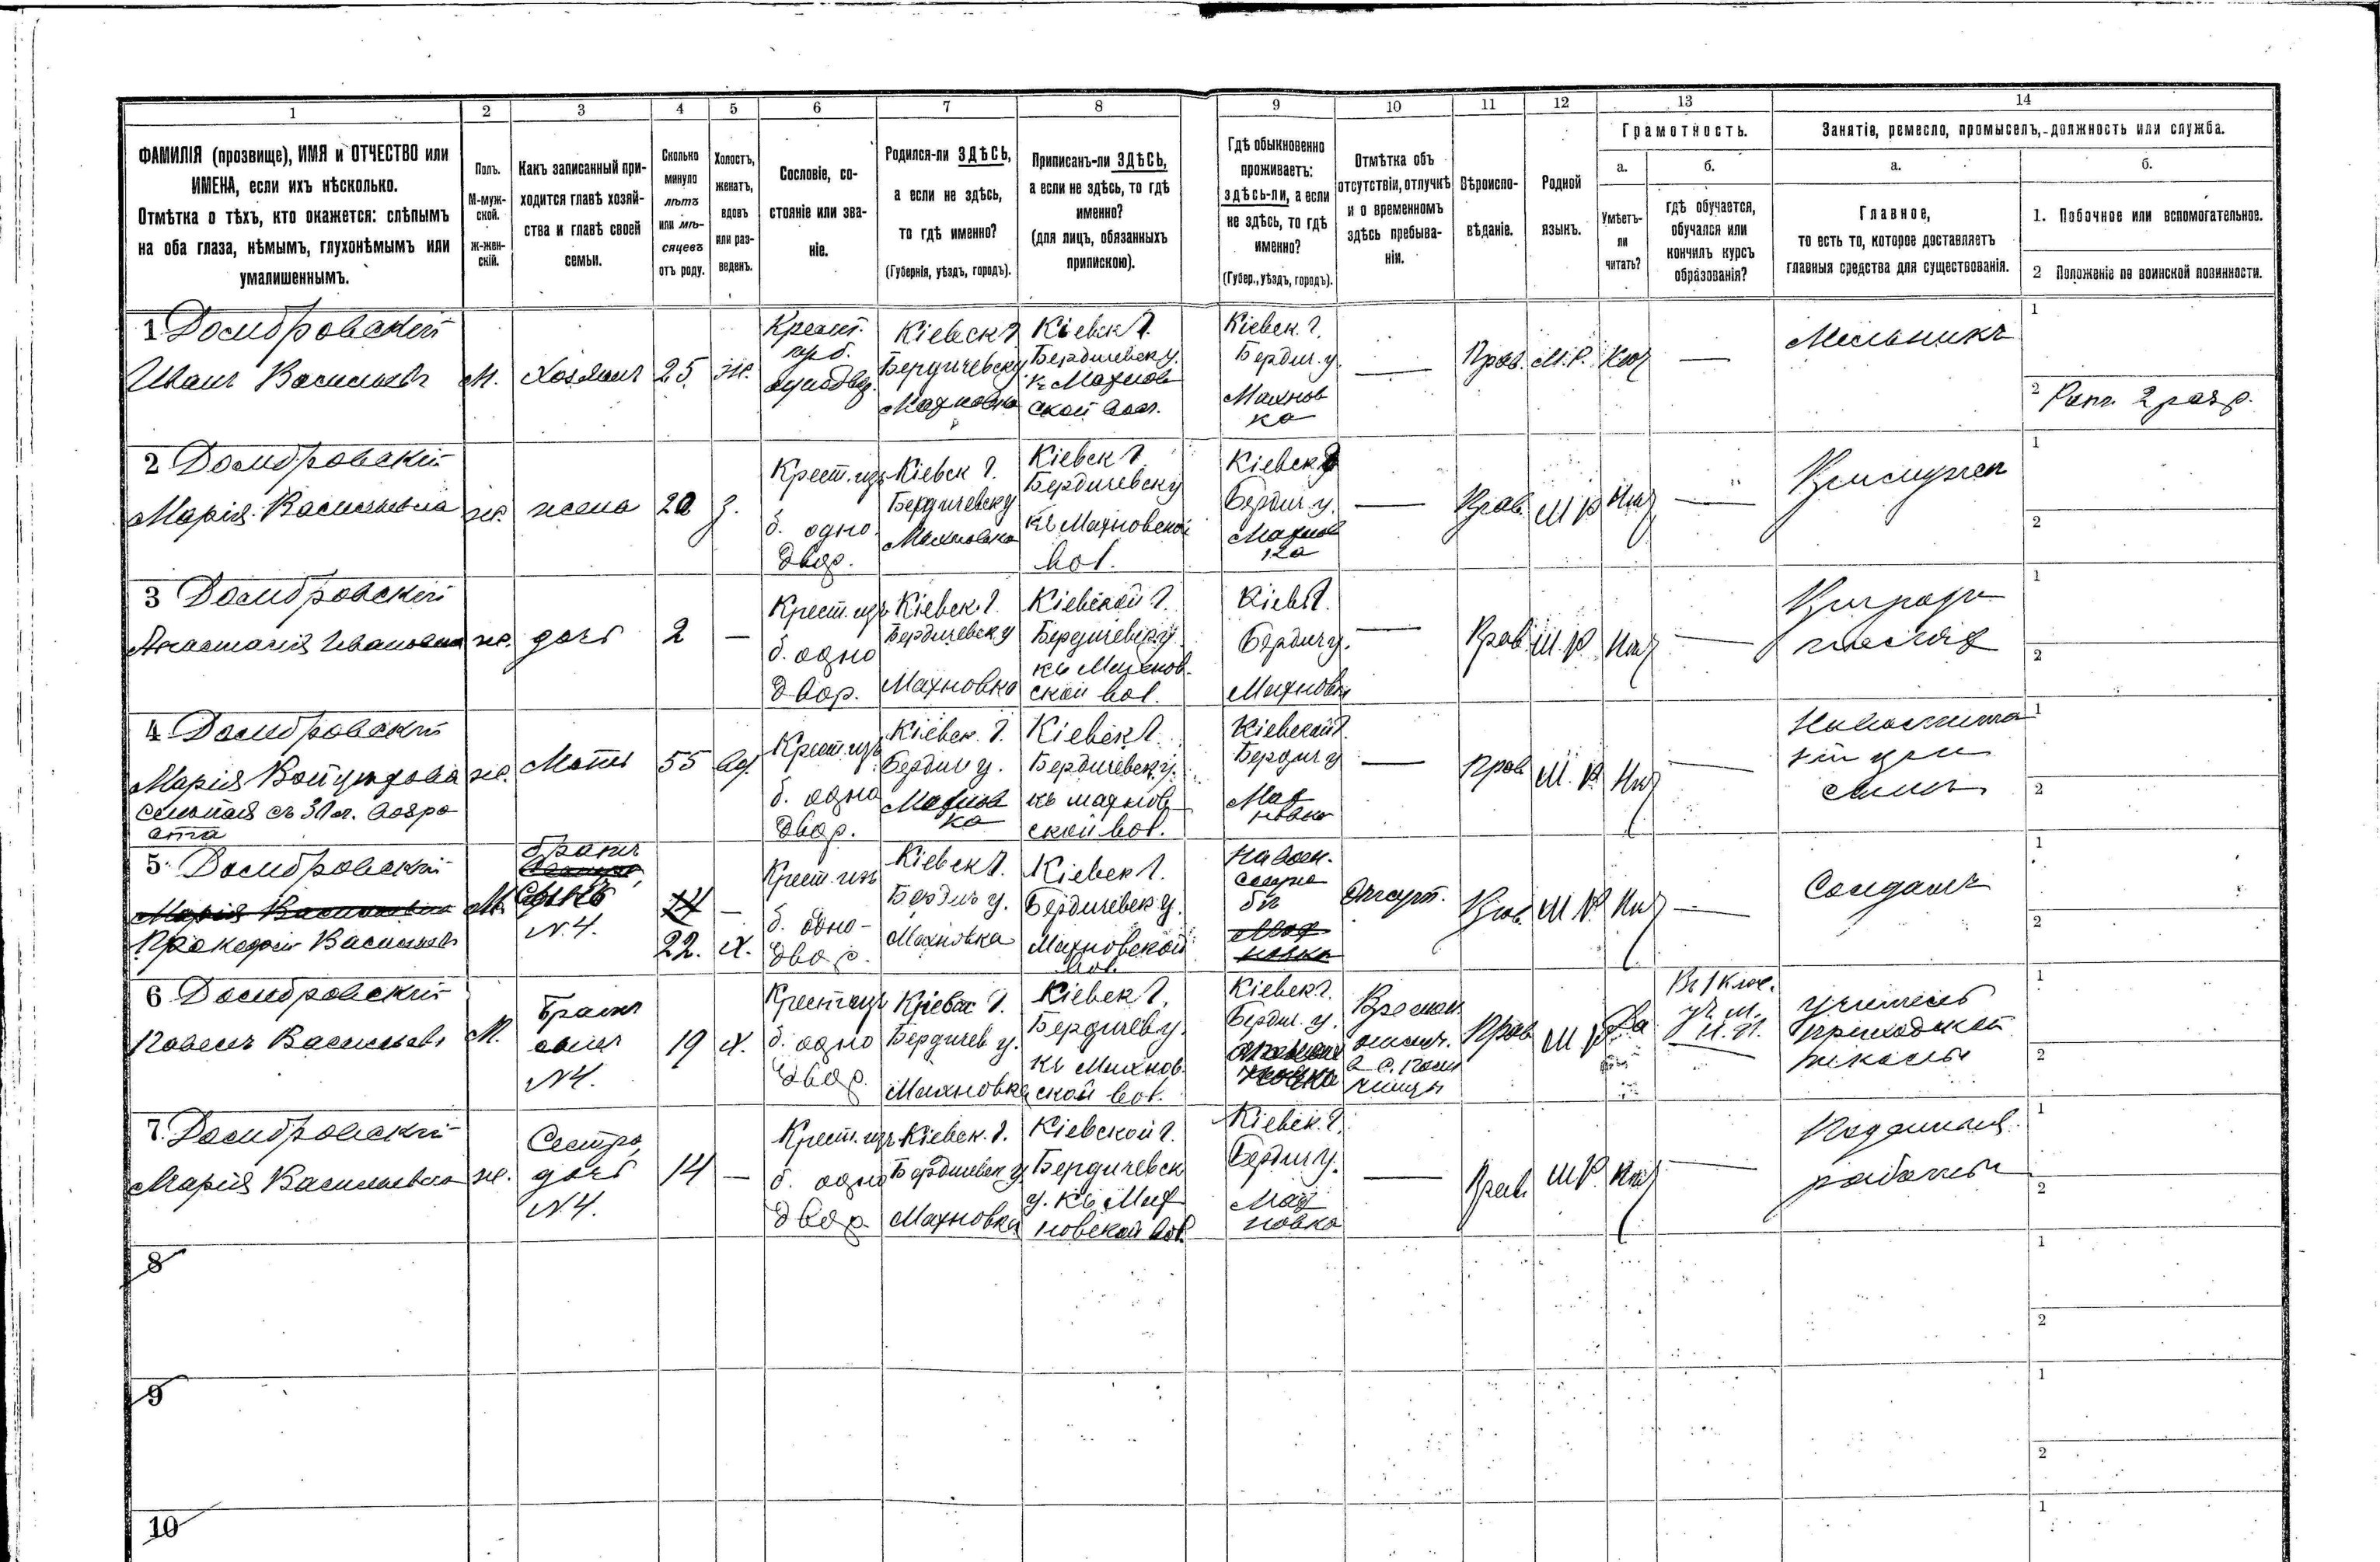 1
2
3
4
5
6
7
8
9
10
11
12
13
14
ФАМИЛІЯ (прозвище), ИМЯ и ОТЧЕСТВО или
ИМЕНА, если ихъ нѣсколько.
Отмѣтка о тѣхъ, кто окажется: слѣпымъ
на оба глаза, нѣмымъ, глухонѣмымъ или
умалишеннымъ.
Полъ.
М-муж-
ской.
ж-жен-
скій.
Какъ записанный при-
ходится главѣ хозяй-
ства и главѣ своей
семьи.
Сколько
минуло
лѣтъ
или мѣ-
сяцевъ
отъ роду.
Холостъ,
женатъ,
вдовъ
или раз-
веденъ.
Сословіе, со-
стояніе или зва-
ніе.
Родился-ли ЗДѢСЬ,
а если не здѣсь,
то гдѣ именно?
(Губернія, уѣздъ, городъ).
Приписанъ-ли ЗДѢСЬ,
а если не здѣсь, то гдѣ
именно?
(для лицъ, обязанныхъ
припискою).
Гдѣ обыкновенно
проживаетъ:
здѣсь-ли, а если
не здѣсь, то гдѣ
именно?
(Губер., уѣздъ, городъ).
Отмѣтка объ
отсутствіи, отлучкѣ
и о временномъ
здѣсь пребыва-
ніи.
Вѣроиспо-
вѣданіе.
Родной
языкъ.
Грамотность.
а.
Умѣетъ-
ли
читать?
б.
гдѣ обучается,
обучался или
кончилъ курсъ
образованія?
Занятія, ремесло, промыселъ, должность или служба.
а.
Главное,
то есть то, которое доставляетъ
главныя средства для существованія.
б.
1. Побочное или вспомогательное.
2 Положеніе по воинской повинности.
1 Домбровскій
Иванъ Васильевъ
М.
Хозяинъ
25
Ж.
Крест.
Кіевск. г.
Бердичевск у
Махновка
Кіевск г.
Бердичевск у.
къ Махнов
ской вол.
Кіевск. г.
Бердич. у.
Махнов
ка
—
Прав.
М. Р.
—
Мельникъ
1
2 Рат. 2 разр.
2 Домбровскій
Марія Васильевна
ж.
жена
20
з.
Крест. изъ
б. одно
двор.
Кіевск г.
Бердичевск у
Махновка
Кіевск г
Бердичевск у
къ Махновской
вол.
Кіевск г
Бердич. у.
Махнов
ка
—
Прав.
М Р
Нѣт
—
1
2
3 Домбровскій
Анастасія Ивановна
ж.
дочь
2
—
Крест. изъ
б. одно
двор.
Кіевск. г.
Бердичевск у
Махновка
Кіевской г.
Бердичевск у.
къ Махнов-
ской вол.
Кіев г.
Бердич у.
Махновка
—
Прав.
М. Р.
Нѣт
—
1
2
4 Домбровскій
Марія
слѣпая съ 30 л. возра
ста
ж.
Мать
55
вд.
Крест. изъ
б. одно
двор.
Кіевск. г.
Бердич у.
Махнов
ка
Кіевск г.
Бердичевск у.
къ махнов
ской вол.
Кіевской г.
Бердич у
Мах
новка
—
Прав
М. Р.
Нѣт
—
при
сынѣ
1
2
5. Домбровскій
Марія Васильевна
Прокофій Васильевъ
М.
братъ
Сынъ
N. 4.
14
22.
—
Х.
Крест. изъ
б. одно-
двор.
Кіевск г.
Бердич у.
Махновка
Кіевск г.
Бердичевск у.
Махновской
вол.
На воен.
служ
бѣ
Мах
новка
Отсут.
Прав.
М Р.
Нѣт
—
Солдатъ
1
2
6 Домбровскій
Павелъ Васильевъ
М.
Братъ
сынъ
N 4.
19
Х.
Крест изъ
б. одно
двор.
Кіевск г.
Бердичев у.
Махновка
Кіевск г.
Бердичев у.
къ Махнов-
ской вол.
Кіевск г.
Бердич. у.
Времен.
Прав
М Р
Да
учитель
приходской
школы
1
2
7. Домбровскій
Марія Васильевна
ж.
Сестра,
дочь
N 4.
14
—
Крест. изъ
б. одно
двор
Кіевск. г.
Бердичевск у
Махновка
Кіевской г.
Бердичевск
у. къ Мах
новской вол.
Кіевск. г.
Бердич у.
Мах
новка
—
Прав.
М Р.
Нѣт
—
Поденныя
работы
1
2
8
1
2
9
1
2
10
1